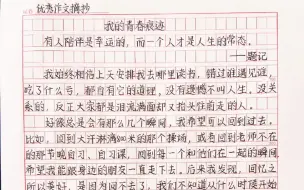 优秀作文摘抄
我的青春痕迹
有人陪伴是幸运的，而一个人才是人生的常态。
——题记
我始终相信上天安排我去哪里读书，错过谁遇见谁，
吃了什么苦，都有自它的道理，没有遗憾不叫人生，没关
系的，反正大家都是泪流满面却又抬头往前走的人。
好像总是会有那么几个瞬间，我希望可以回到过去，
比如，回到大汗淋漓800米的那个操场，或者回到老师不在
的那节晚自习、自习课，回到每一个和他们在一起的瞬间
希望我能跟身边的朋友一直走下去。后来我发现，回忆之
所以美好，是因为回不去了。我们不知道什么时候